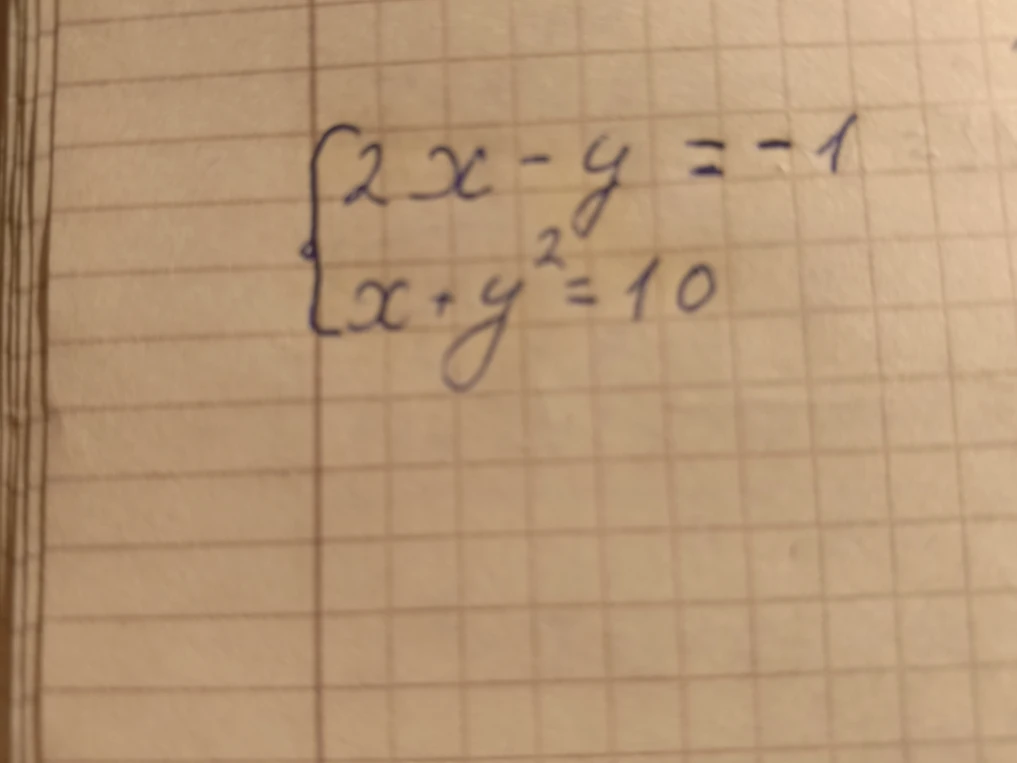 2x - y = -1
x + y² = 10